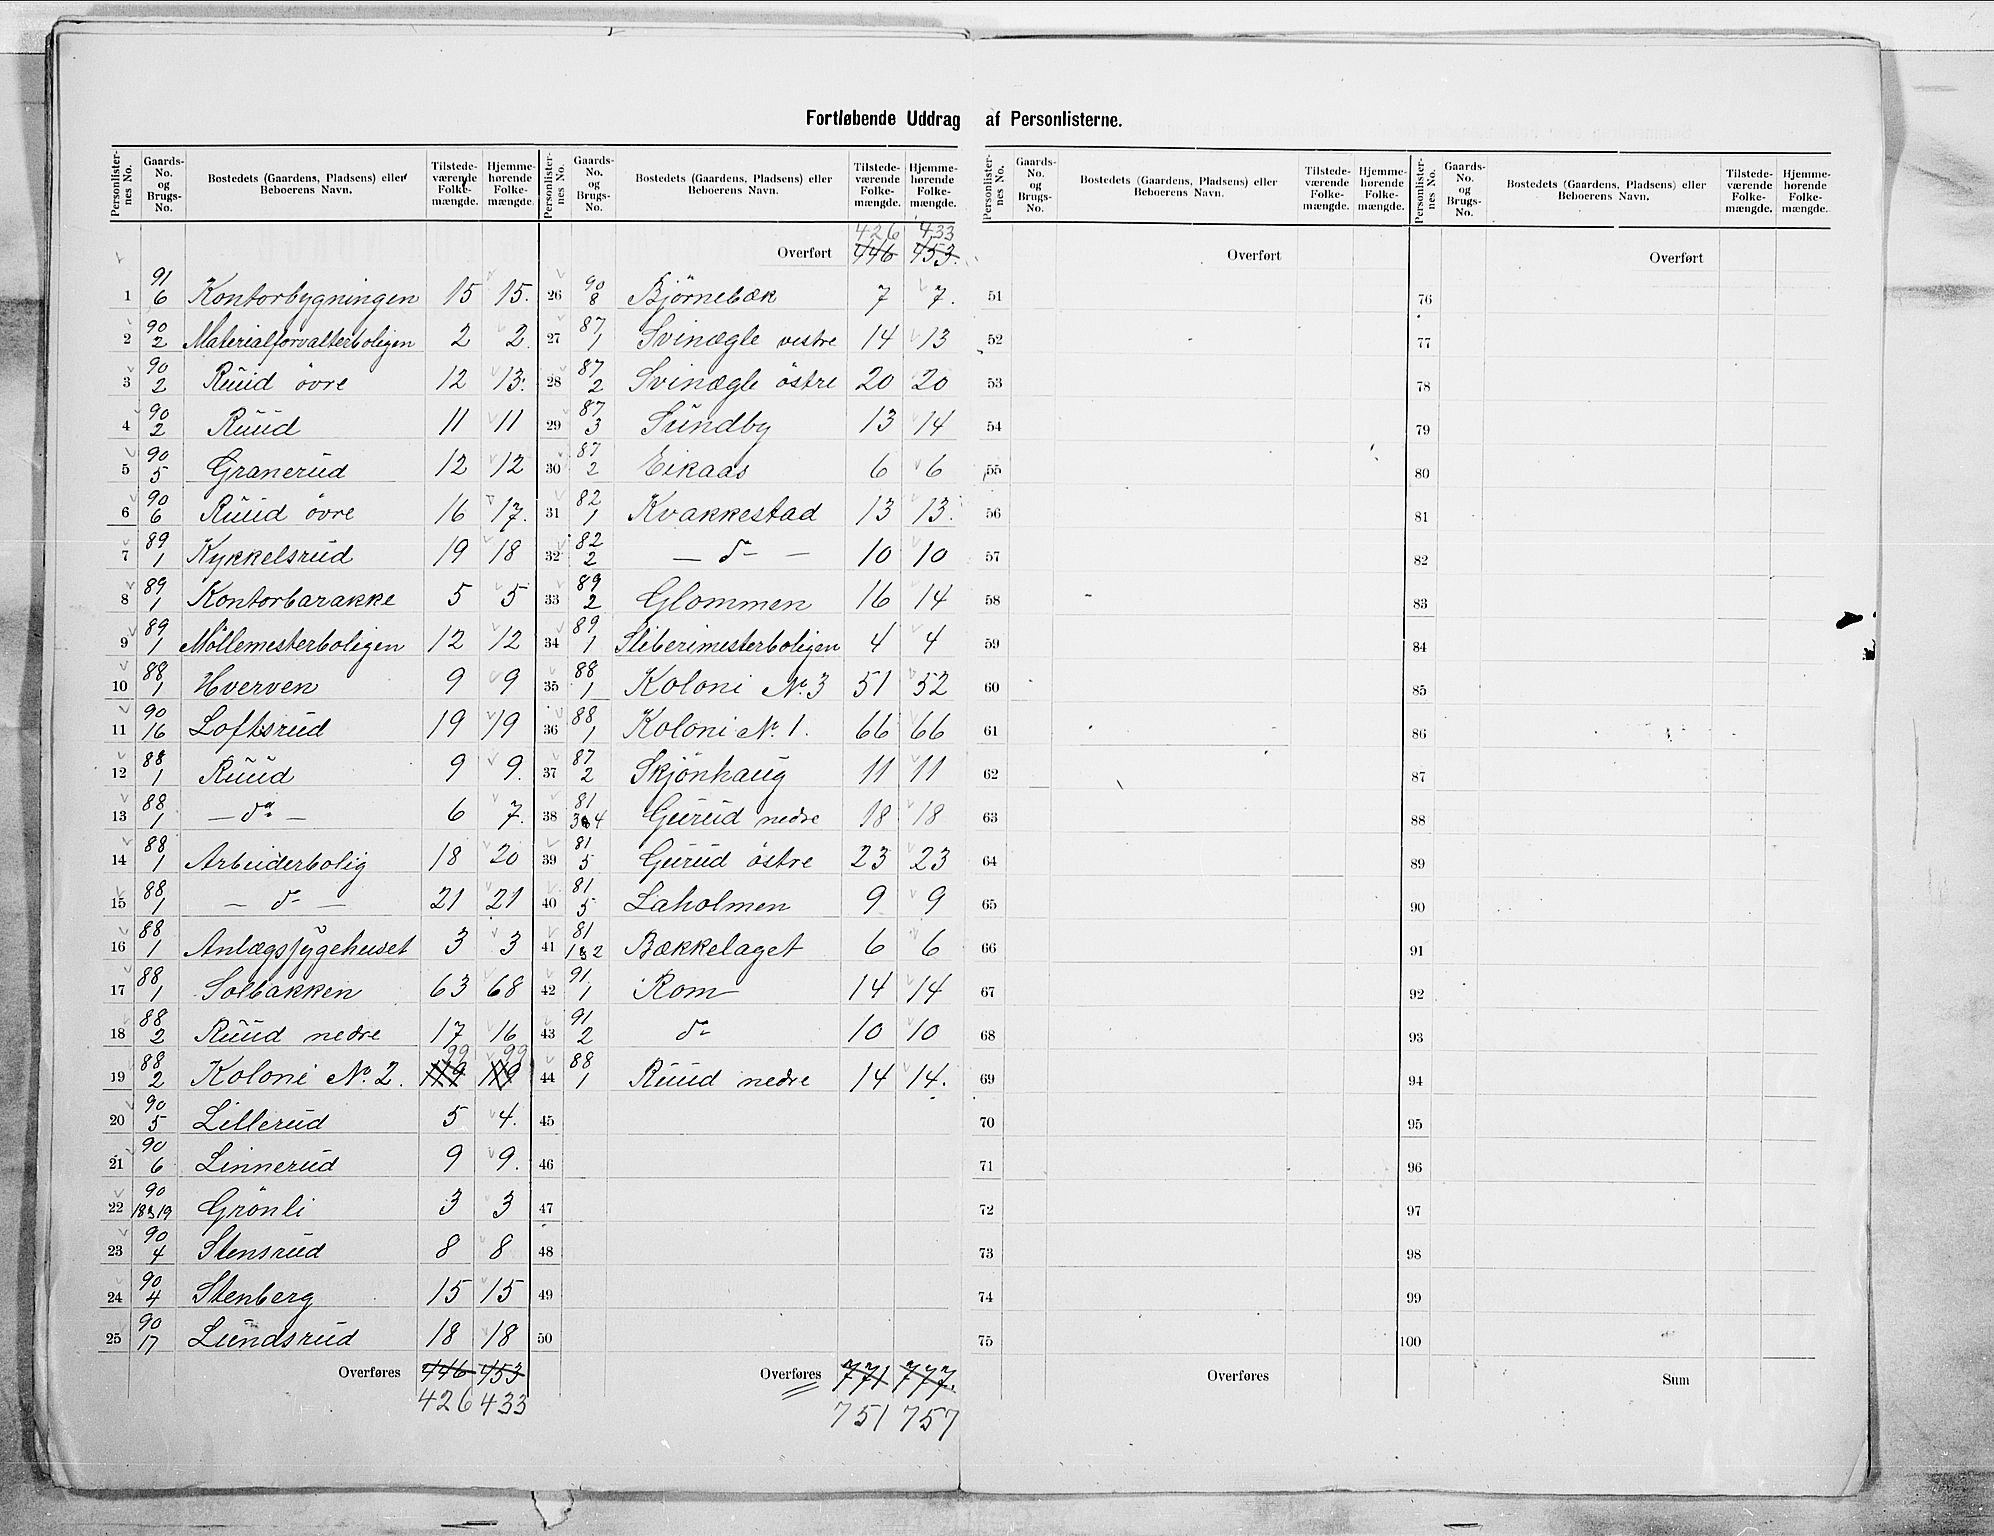 Fortløbende Uddrag af Personlisterne.
Personlister-nes No. Gaards-No. og Brugs-No. Bostedets (Gaardens, Pladsens) eller Beboerens Navn. Tilstede-værende Folke-mængde. Hjemme-hørende Folke-mængde.
1 91/6 Kontorbygningen 15 15.
2 90/2 Materialforvalterboligen 2 2.
3 90/2 Ruud övre 12 13.
4 90/2 Ruud 11 11
5 90/5 Granerud 12 12
6 90/6 Ruud övre 16 17.
7 89/1 Kykkelsrud 19 18
8 89/1 Kontorbarakke 5 5
9 89/1 Möllemesterboligen 12 12
10 88/1 Hverven 9 9
11 90/16 Loftsrud 19 19
12 88/1 Ruud 9 9.
13 88/1 — do — 6 7.
14 88/1 Arbeiderbolig 18 20
15 88/1 — do — 21 21
16 88/1 Anlægssygehuset 3 3
17 88/1 Solbakken 63 68
18 88/2 Ruud nedre 17 16
99 99
19 88/2 Koloni No. 2. 119 119
20 90/5 Lillerud 5 4.
21 90/6 Linnerud 9 9.
22 90/18&19 Grönli 3 3
23 90/4 Stensrud 8 8
24 90/4 Stenberg 15 15
25 90/17 Lundsrud 18 18
Overføres 446 453
426 433
Personlister-nes No. Gaards-No. og Brugs-No. Bostedets (Gaardens, Pladsens) eller Beboerens Navn. Tilstede-værende Folke-mængde. Hjemme-hørende Folke-mængde.
426 433
Overført 446 453.
26 90/8 Bjørnebæk 7 7.
27 87/1 Svinægle vestre 14 13
28 87/2 Svinægle östre 20 20
29 87/3 Sundby 13 14
30 87/2 Eikaas 6 6
31 82/1 Kvakkestad 13 13.
32 82/2 — do — 10 10
33 89/2 Glommen 16 14
34 89/1 Sliberimesterboligen 4 4
35 88/1 Koloni No. 3 51 52
36 88/1 Koloni No. 1. 66 66
37 87/2 Skjönhaug 11 11
38 81/3&4 Gurud nedre 18 18
39 81/5 Gurud östre 23 23
40 81/5 Laholmen 9 9
41 81/1&2 Bækkelaget 6 6
42 91/1 Rom 14 14
43 91/2 do 10 10
44 88/1 Ruud nedre 14 14.
45
46
47
48
49
50
Overføres 771 777.
751 757
Personlister-nes No. Gaards-No. og Brugs-No. Bostedets (Gaardens, Pladsens) eller Beboerens Navn. Tilstede-værende Folke-mængde. Hjemme-hørende Folke-mængde.
Overført
51
52
53
54
55
56
57
58
59
60
61
62
63
64
65
66
67
68
69
70
71
72
73
74
75
Overføres
Personlister-nes No. Gaards-No. og Brugs-No. Bostedets (Gaardens, Pladsens) eller Beboerens Navn. Tilstede-værende Folke-mængde. Hjemme-hørende Folke-mængde.
Overført
76
77
78
79
80
81
82
83
84
85
86
87
88
89
90
91
92
93
94
95
96
97
98
99
100
Sum